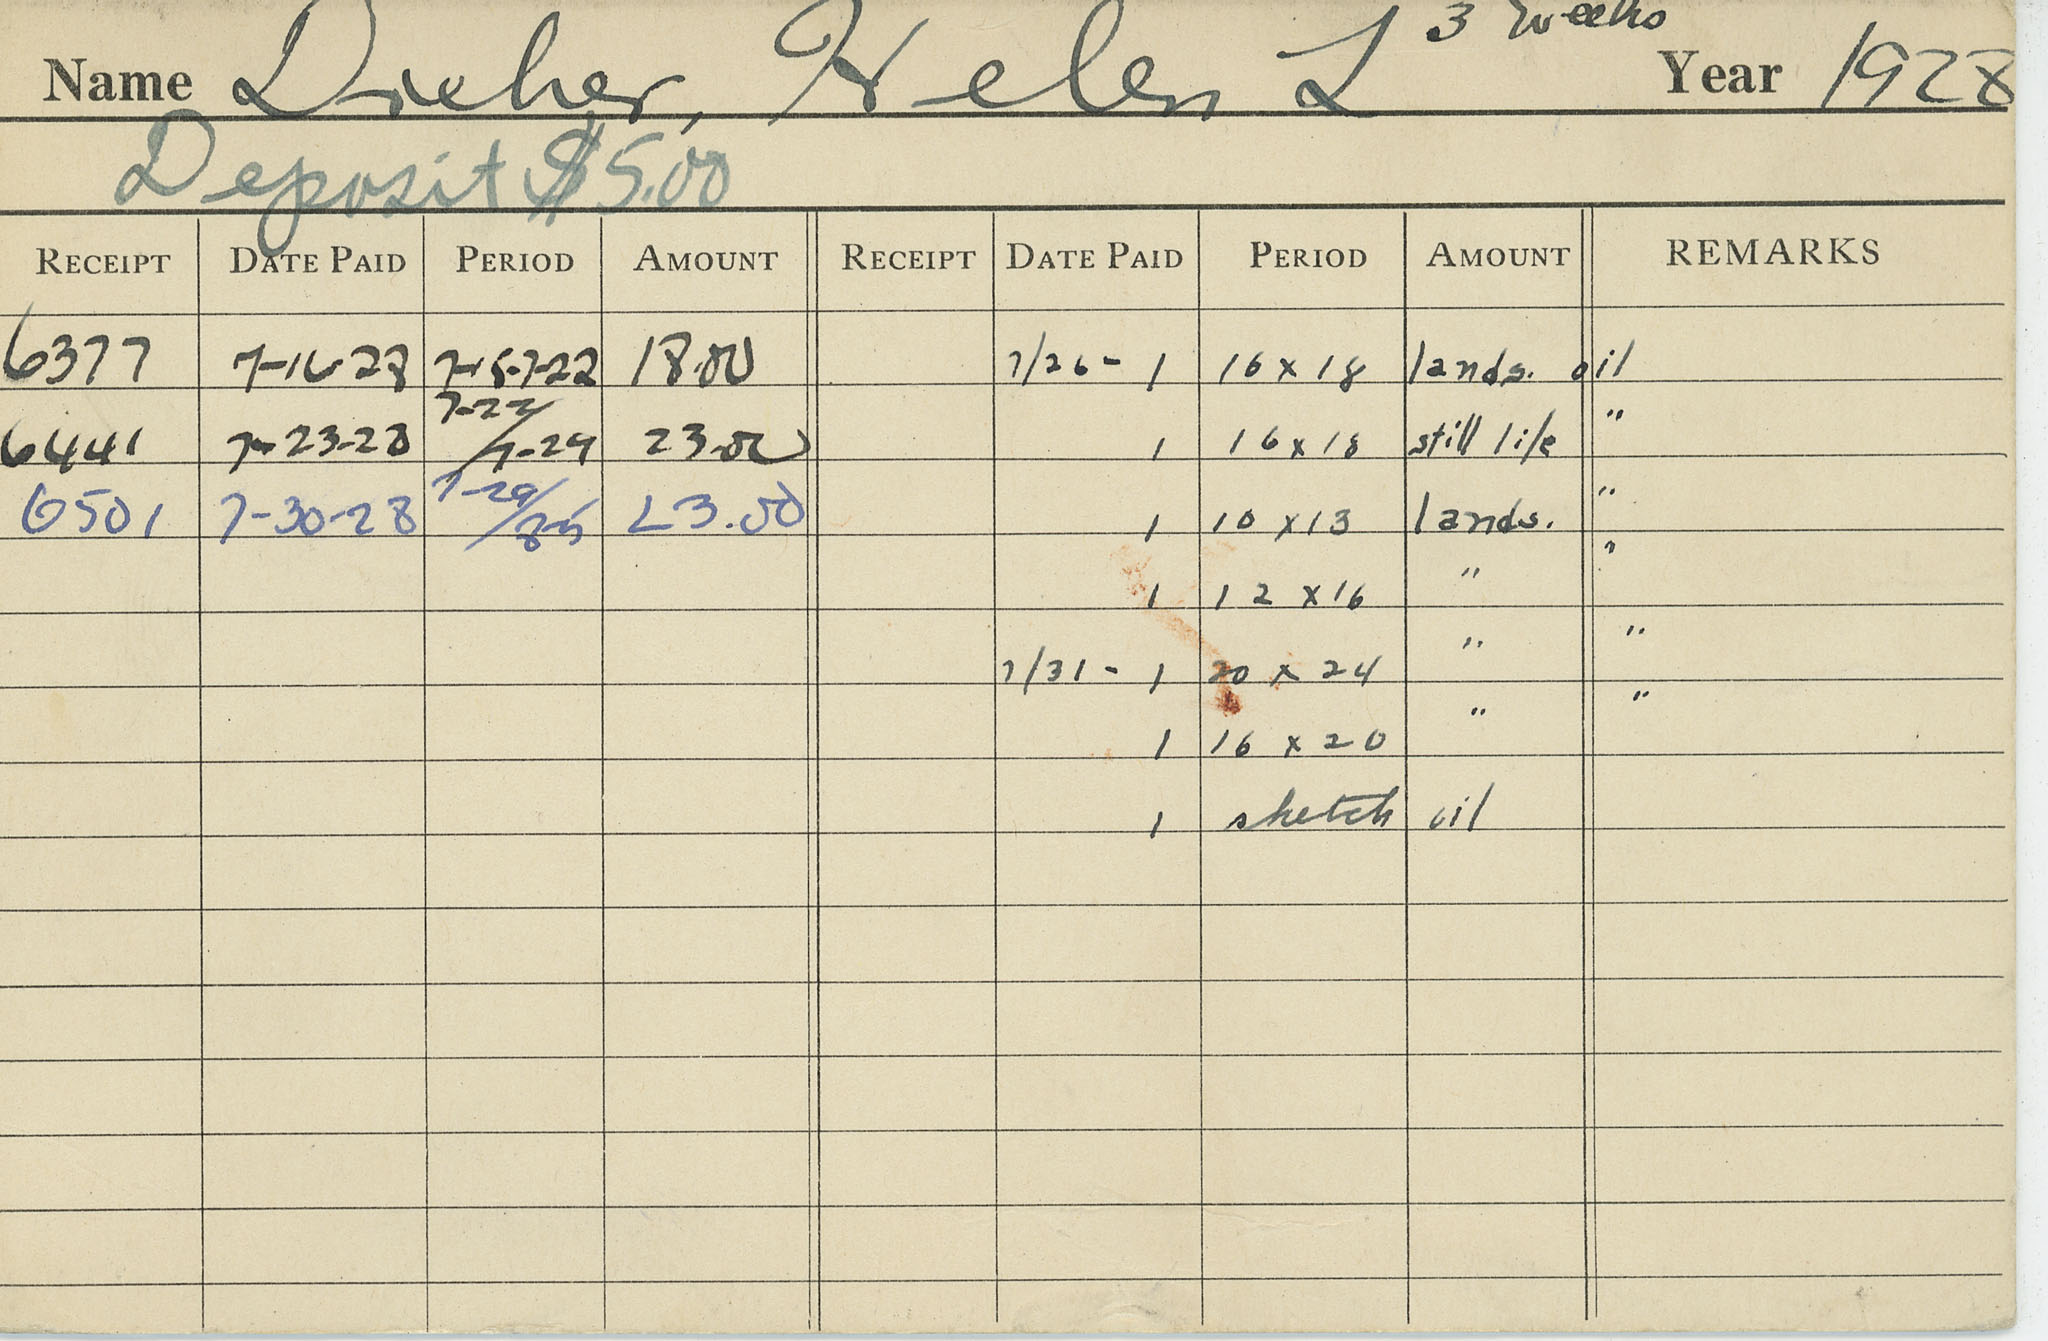 3 weeks
Name Dreher, Helen L Year 1928
Deposit $5.00
RECEIPT DATE PAID PERIOD AMOUNT RECEIPT DATE PAID PERIOD AMOUNT REMARKS
6377 7-16-28 7-15-7-22 18.00 7/26 - 1 16 x 18 lands. oil
6441 7-23-28 7-22/7-29 23.00 1 16 x 18 still life "
6501 7-30-28 7-29/8-5 23.00 1 10 x 13 lands. "
1 12 x 16 " "
7/31 - 1 20 x 24 " "
1 16 x 20 " "
1 sketch oil